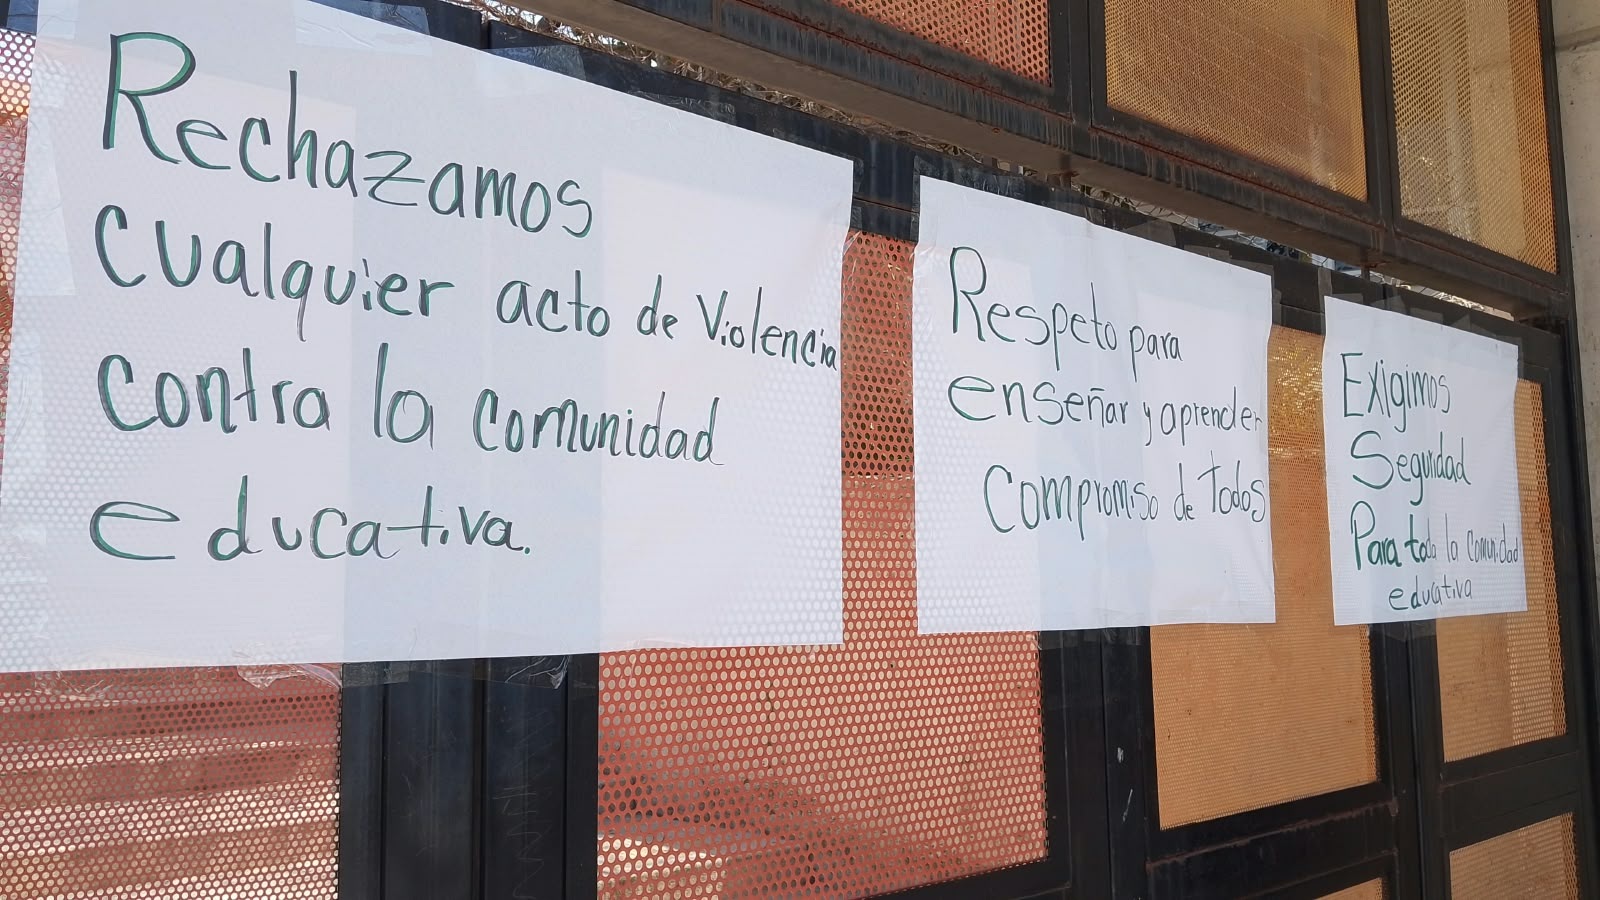 Rechazamos
cualquier acto de Violencia
contra la comunidad
educativa.
Respeto para
enseñar y aprender
Compromiso de Todos
Exigimos
Seguridad
Para toda la Comunidad
educativa